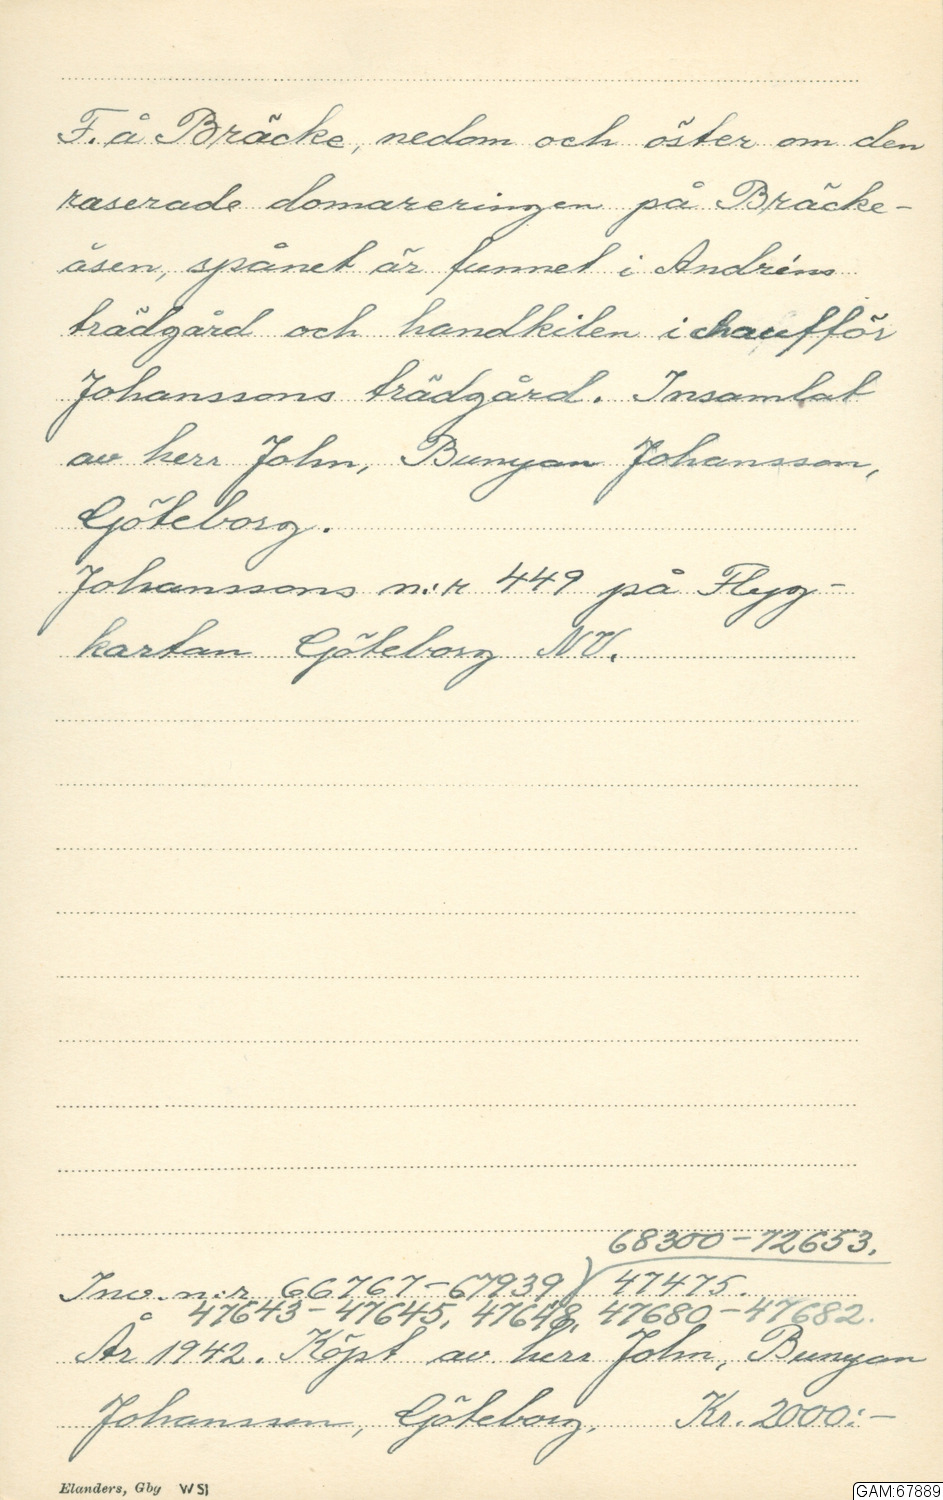 F. å Bräcke, nedom och öster om den
raserade domareringen på Bräcke-
åsen, spånet är funnet i Andréns
trädgård och handkilen i chaufför
Johanssons trädgård. Insamlat
av herr John, Bunyan Johansson,
Göteborg.
Johanssons n:r 449 på Flyg-
kartan Göteborg NV.
68300-72653.
Inv. n:r 66767-67939 47475.
47643-47645, 47648, 47680-47682.
År 1942. Köpt av herr John, Bunyan
Johansson, Göteborg. Kr. 2000:-
Elanders, Gbg W 51
GAM:67889